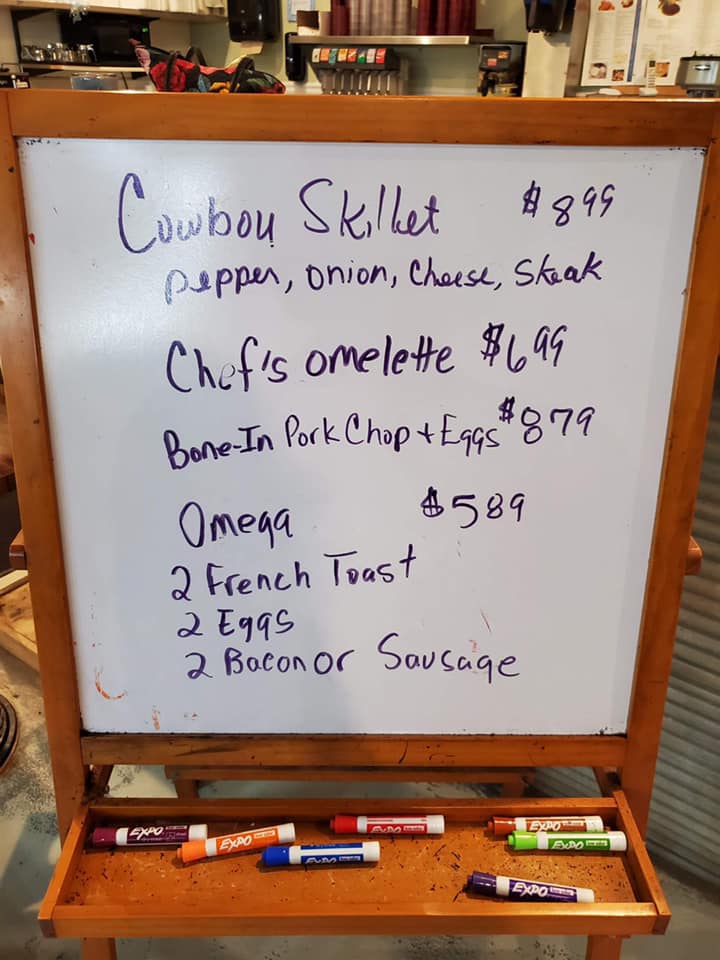 Cowboy Skillet $8.99
pepper, onion, Cheese, Steak
Chef's omelette $6.99
Bone-In Pork Chop + Eggs $8.79
Omega $5.89
2 French Toast
2 Eggs
2 Bacon or Sausage
EXPO
EXPO
EXPO
EXPO
EXPO
EXPO
EXPO